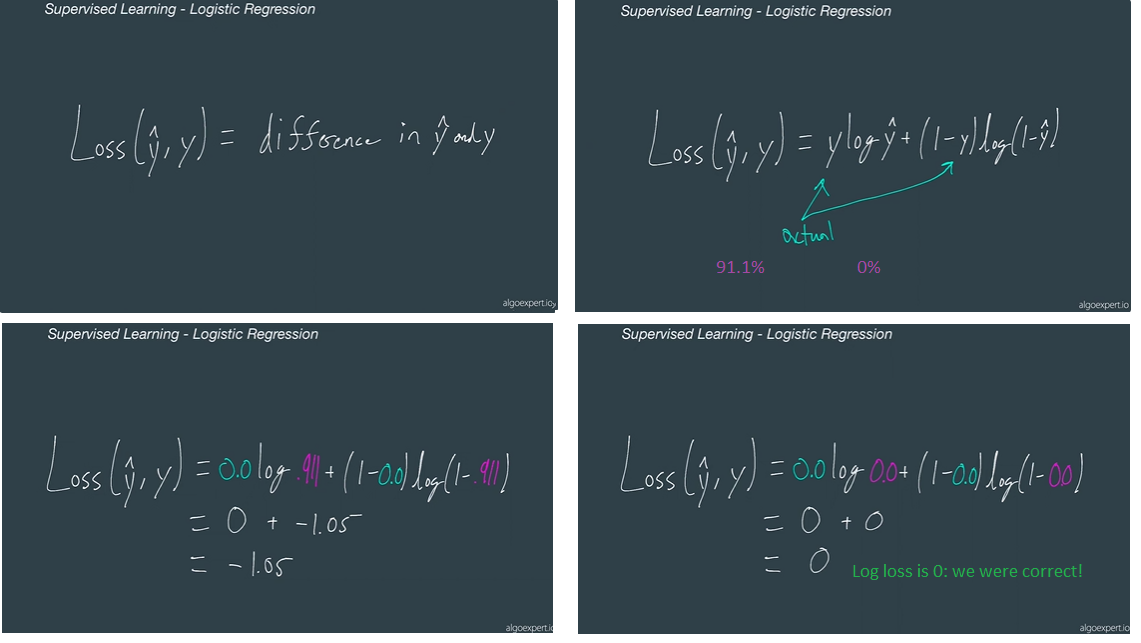 Supervised Learning - Logistic Regression
Loss(ŷ, y) = difference in ŷ and y
algoexpert.io
Supervised Learning - Logistic Regression
Loss(ŷ, y) = y log ŷ + (1-y) log(1-ŷ)
actual
91.1% 0%
algoexpert.io
Supervised Learning - Logistic Regression
Loss(ŷ, y) = 0.0 log .911 + (1-0.0) log(1-.911)
= 0 + -1.05
= -1.05
algoexpert.io
Supervised Learning - Logistic Regression
Loss(ŷ, y) = 0.0 log 0.0 + (1-0.0) log(1-0.0)
= 0 + 0
= 0 Log loss is 0: we were correct!
algoexpert.io